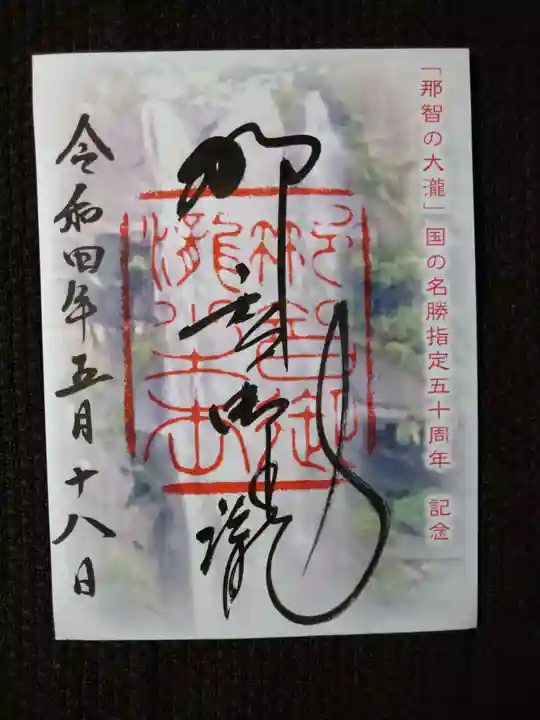 「那智の大瀧」国の名勝指定五十周年 記念
那智御瀧
令和四年五月十八日